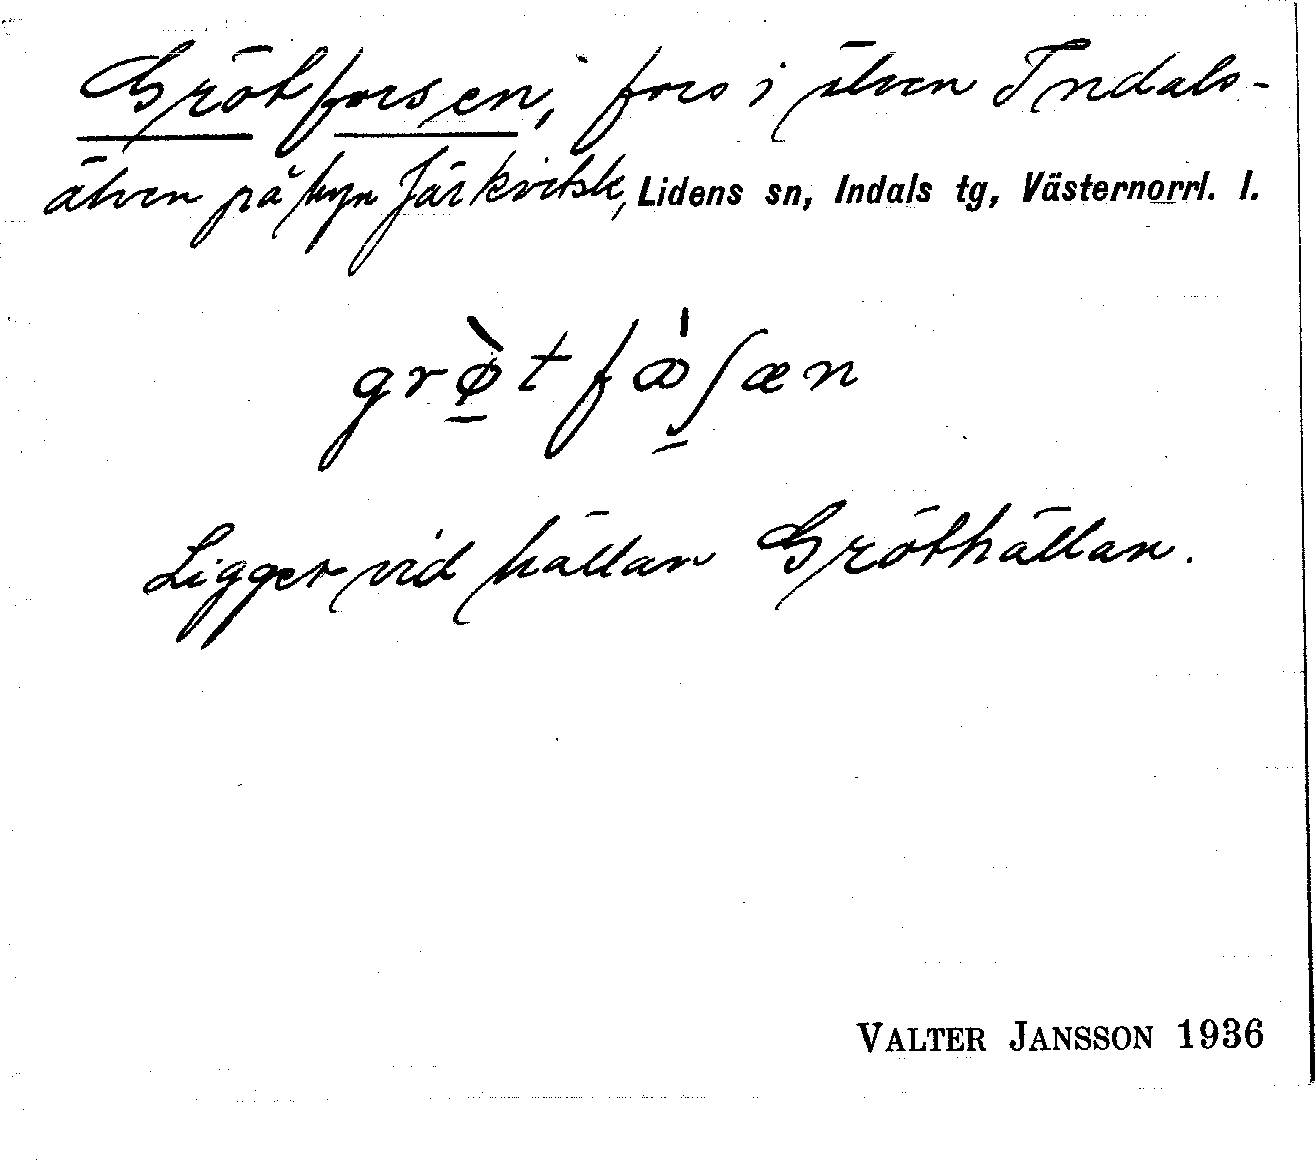 Grötforsen, fors i älven Indals-
älven på hyn Järkvitsle, Lidens sn, Indals tg, Västernorrl. l.
grø̱̀t fꝏ́ʃ̱æn
Ligger vid hällan Gröthällan.
VALTER JANSSON 1936